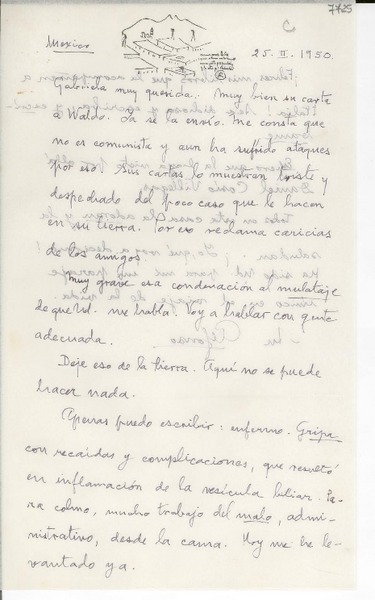 7425
Mexico
25. II. 1950.
Gabriela muy querida. Muy bien su carta
a Waldo. Ya se la envío. Me consta que
no es comunista y aun ha sufrido ataques
por eso. Sus cartas lo muestran triste y
despechado del poco caso que le hacen
en su tierra. Por eso reclama caricias
de los amigos.
Muy grave esa condenación al mulataje
de que Ud. me habla. Voy a hablar con gente
adecuada.
Deje eso de la tierra. Aquí no se puede
hacer nada.
Apenas puedo escribir: enfermo. Gripa
con recaídas y complicaciones, que resultó
en inflamación de la vesícula biliar. Pa-
ra colmo, mucho trabajo del malo, admi-
nistrativo, desde la cama. Hoy me he le-
vantado ya.